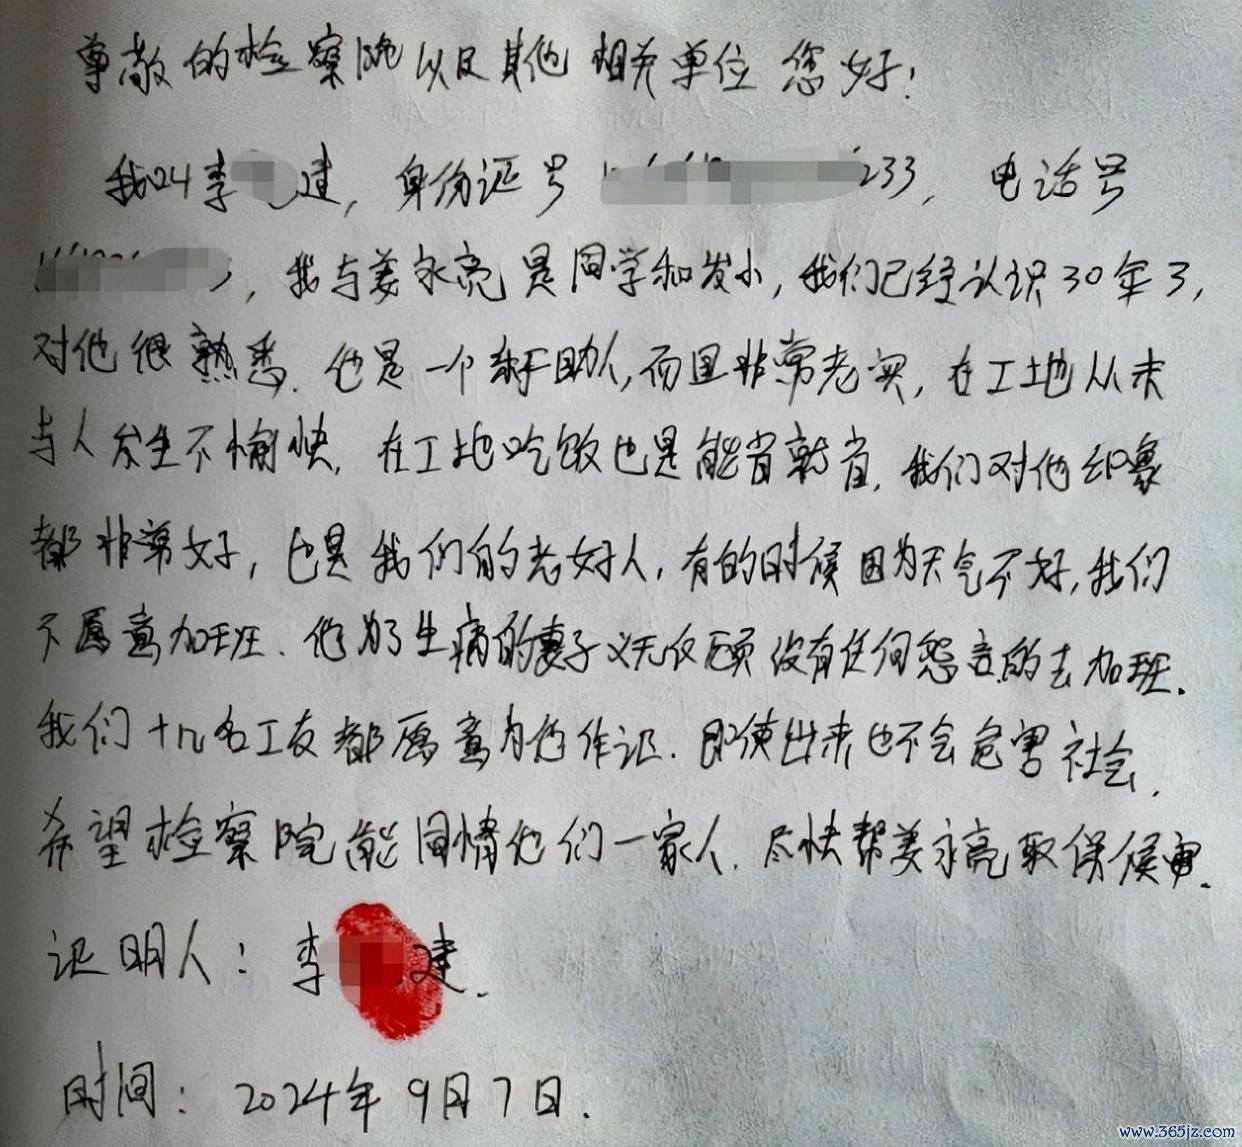 尊敬的检察院以及其他相关单位您好！
我叫李 建，身份证号 233，电话号
，我与姜永亮是同学和发小，我们已经认识30年了，
对他很熟悉．他是一个乐于助人，而且非常老实，在工地从未
与人发生不愉快．在工地吃饭也是能省就省．我们对他印象
都非常好，也是我们的老好人．有的时候因为天气不好，我们
不愿意加班．他为了生病的妻子义无反顾没有任何怨言的去加班．
我们十几名工友都愿意为他作证．即使出来也不会危害社会．
希望检察院能同情他们一家人．尽快帮姜永亮取保候审．
证明人：李 建．
时间：2024年9月7日．
www.365jz.com